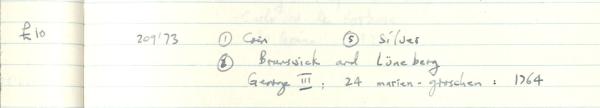 £10 209'73 ① Coin ⑤ Silver
② Brunswick and Lüneberg
George III; 24 marien-groschen: 1764